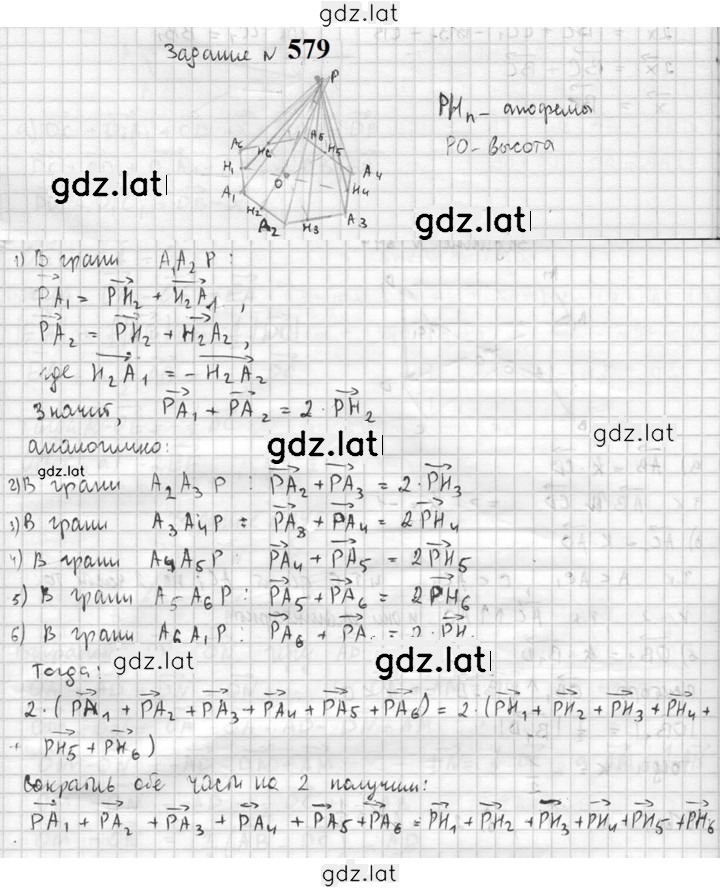 gdz.lat
Задание N 579
P
A₆
H₆
A₅
H₅
H₁
A₄
A₁
O
H₄
H₂
A₂
H₃
A₃
PHₙ - апофемы
PO - высота
gdz.lat
gdz.lat
1) В грани A₁A₂P:
PA₁ = PH₂ + H₂A₁,
PA₂ = PH₂ + H₂A₂,
где H₂A₁ = - H₂A₂
Значит, PA₁ + PA₂ = 2 · PH₂
gdz.lat
аналогично:
gdz.lat
gdz.lat
2) В грани A₂A₃P : PA₂ + PA₃ = 2 · PH₃
3) В грани A₃A₄P : PA₃ + PA₄ = 2PH₄
4) В грани A₄A₅P: PA₄ + PA₅ = 2PH₅
5) В грани A₅A₆P: PA₅ + PA₆ = 2PH₆
6) В грани A₆A₁P: PA₆ + PA = 2 · PH
Тогда:
gdz.lat
gdz.lat
2 · (PA₁ + PA₂ + PA₃ + PA₄ + PA₅ + PA₆) = 2 · (PH₁ + PH₂ + PH₃ + PH₄ +
+ PH₅ + PH₆)
Сократив обе части на 2 получим:
PA₁ + PA₂ + PA₃ + PA₄ + PA₅ + PA₆ = PH₁ + PH₂ + PH₃ + PH₄ + PH₅ + PH₆
gdz.lat